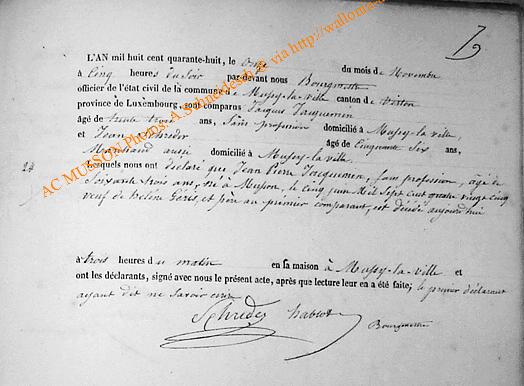 L'AN mil huit cent quarante-huit, le Onze du mois de Novembre
à Cinq heures du Soir par-devant nous Bourgmestre
officier de l'état civil de la commune de Mussy-la-ville canton de Virton
province de Luxembourg, sont comparus Jacques Jacquemin
âgé de trente trois ans, Sans profession domicilié à Mussy-la-ville,
et Jean Schreder âgé de Cinquante Six ans,
Marchand domicilié à Mussy-la-ville
24 Lesquels nous ont déclaré que Jean Pierre Jacquemin, sans profession, âgé de
Soixante trois ans, né à Musson, le Cinq juin Mil Sept Cent quatre vingt Cinq
veuf de helene et père au premier comparant, est décédé aujourd'hui
à trois heures du matin en sa maison à Mussy-la-ville et
ont les déclarants, signé avec nous le présent acte, après que lecture leur en a été faite; le premier déclarant
ayant dit ne savoir ecrire
Schreder
Bourgmestre
AC MUSSON Photos A.Schneidesch © via http://wallonia